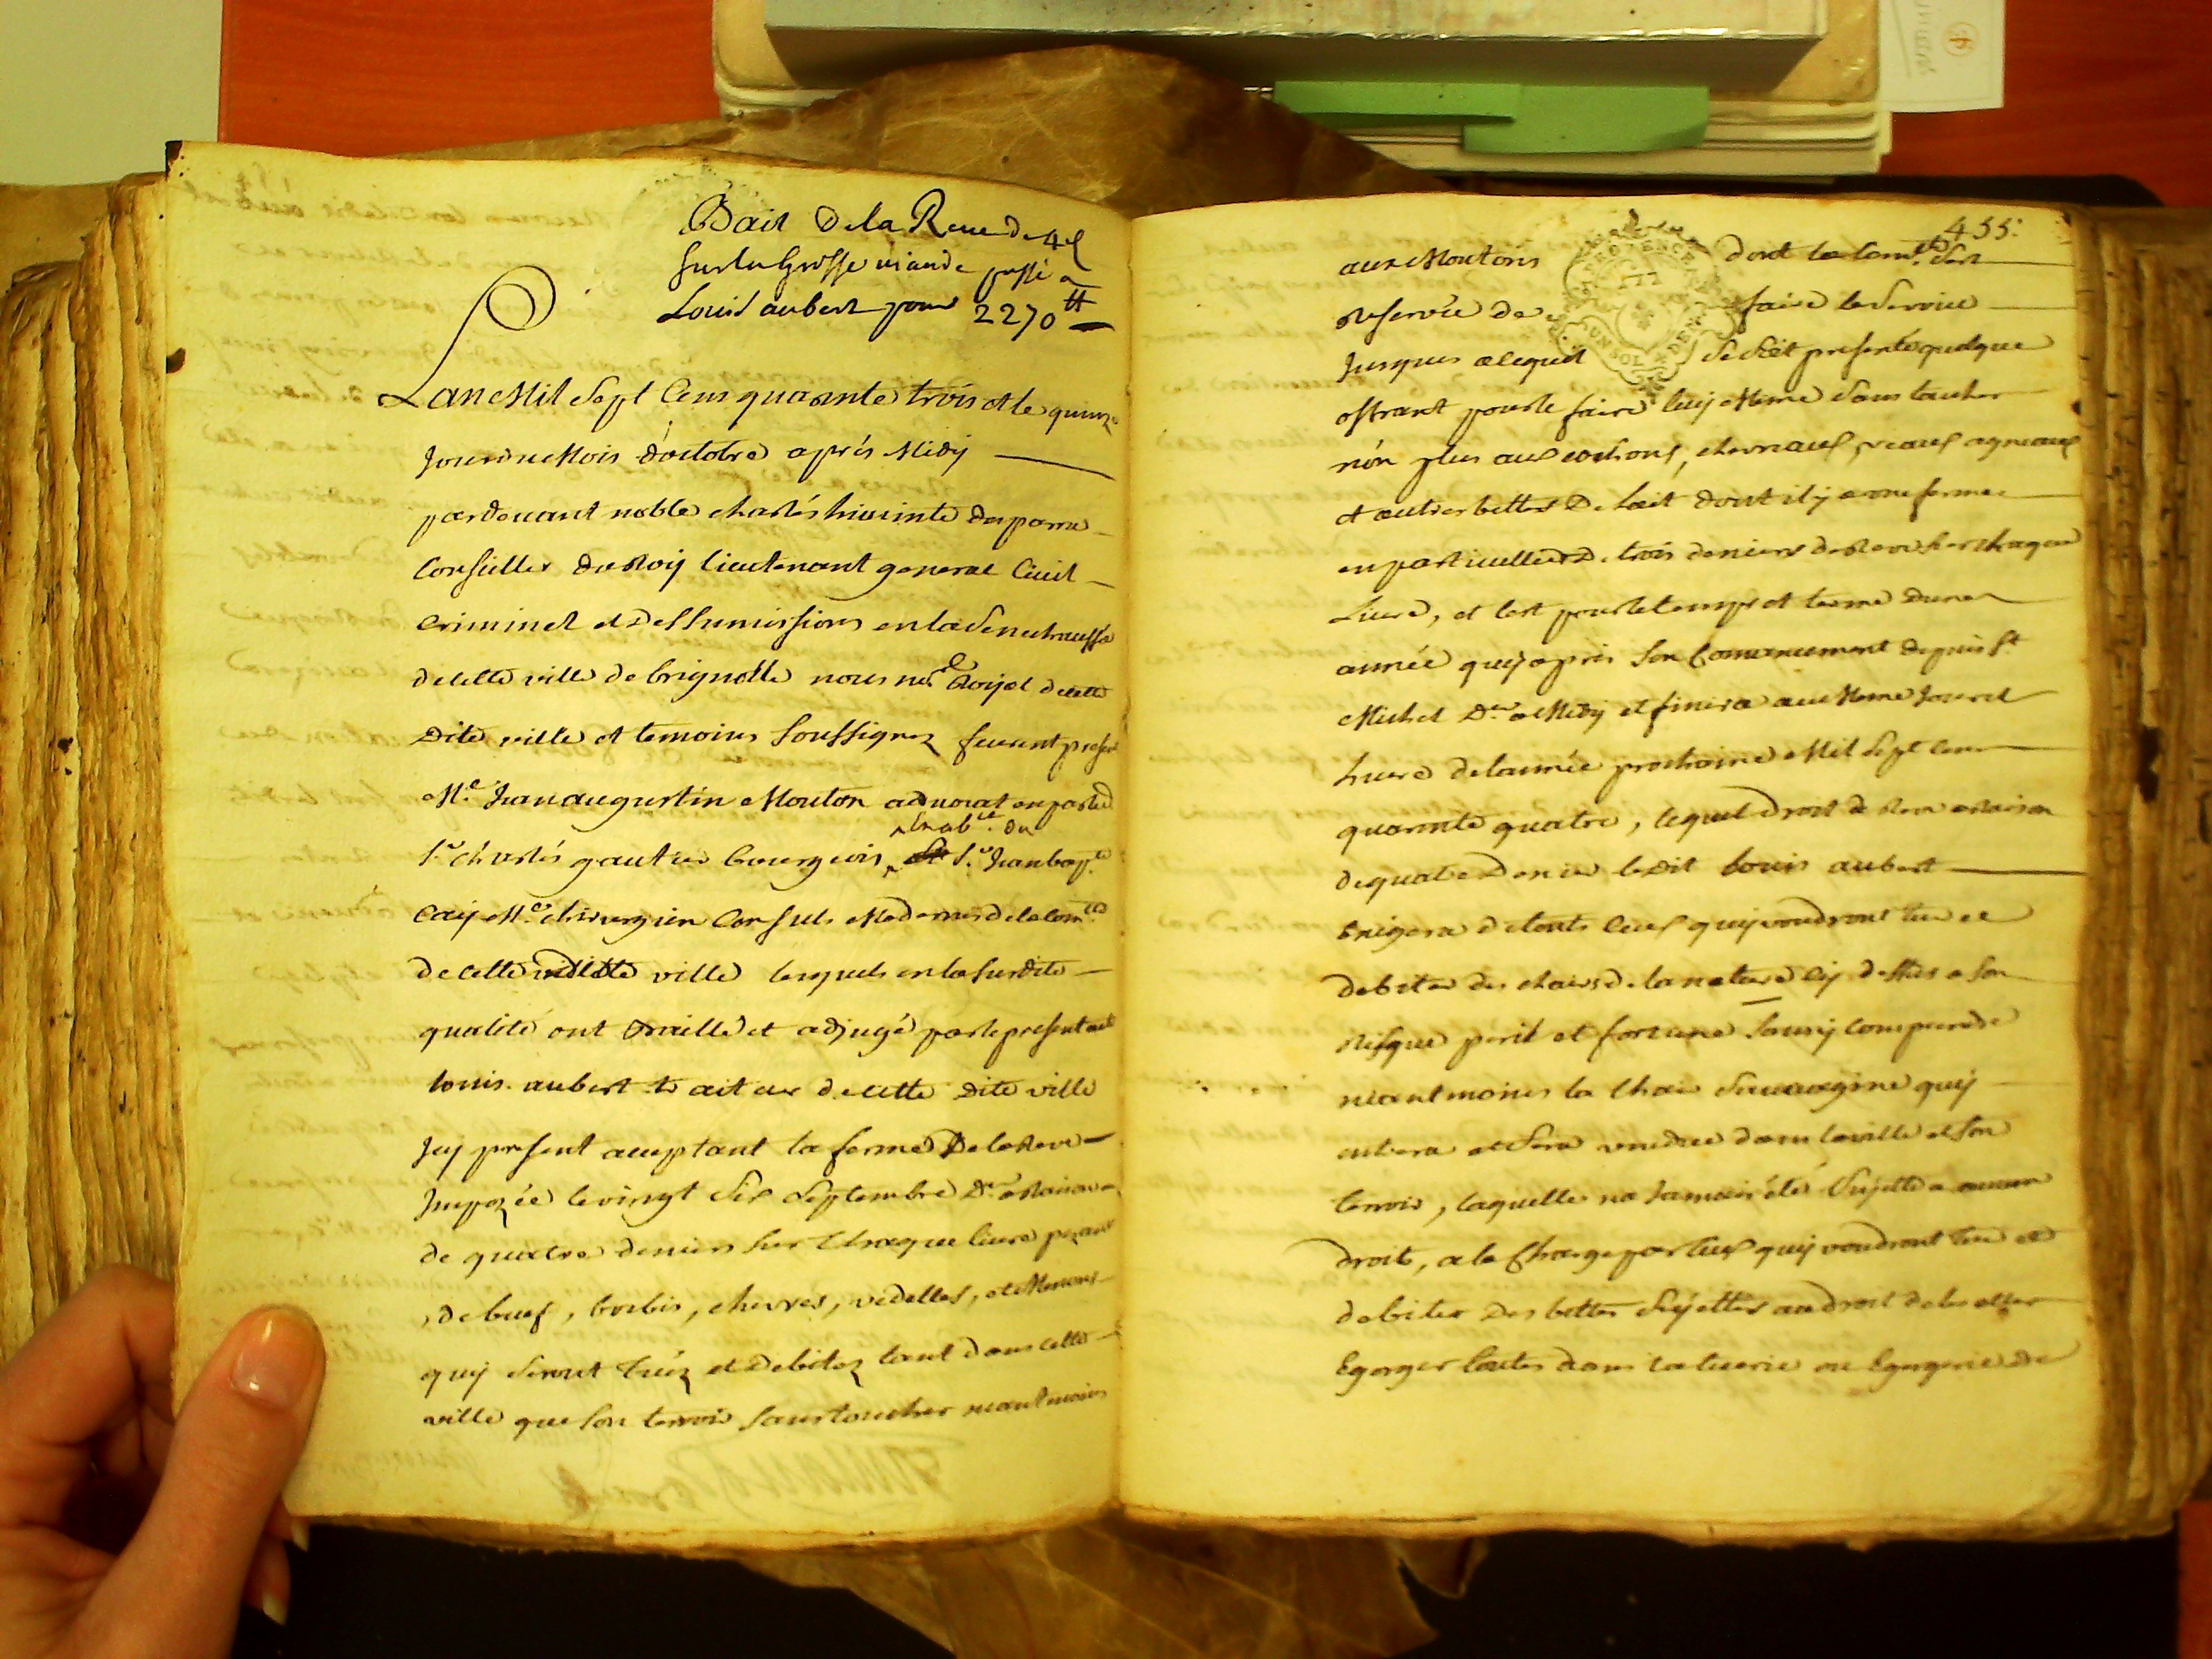 Bail de la Reve de 4d
sur la Grosse viande passé a
Louis aubert pour 2270 tt
Lan Mil Sept Cens quarante trois et le quinze
Jour du Mois d'octobre aprés Midy
pardevant noble charlés hiacinte desparra
Conseiller du Roy lieutenant general Civil
Criminel et des sumissions en la Senechaussée
de cette ville de brignolle nous nore Royal de cette
Dite ville et temoins soussignez furent presens
Me. Jean augustin Mouton advocat en parlt
en abce. du
Sr. charlés gautier bourgeois, Sr. Jean bapte
Caÿ Me. chirurgien Consuls Modernes de la comté
de cette ville lesquels en la susdite
qualité ont Baillé et adjugé par le present acte
louis aubert traiteur de cette Dite ville
Jcy present aceptant la ferme De la Reve
Impozée le vingt Six Septembre Der. a Raison
de quatre deniers sur Chaque livre pezant
de buef, brebis, chevres, vedelles, et Menons
quy seront tuéz et debitez tant dans cette
ville que son terroir sans toucher neantmoins
455.
aux Moutons dont la comté. sest
Reservée de faire le service
Jusques a lequel se soit presenté quelque
offrant pour le faire luy Meme sans toucher
nón plus aux cochons, chevraux, veaux agneaux
et autres bettes De lait dont il y a une ferme
en particulliere De trois deniers de Reve sur chaque
Livre, et cest pour le temps et terme dune
année quy a pris son Commancement depuis St
Michel Der. a Midy et finira au Meme Jour et
heure de lannée prochaine Mil Sept Cens
quarante quatre, lequel droit de Reve a Raison
de quatre deniers le Dit louis aubert
Exigera de touts Ceux quy voudront tuer et
debiter des chairs de la nature Cy dessus a son
Risque peril et fortune sans y comprendre
neantmoins la Chair sauvagine quy
entrera et sera vendue dans la ville et son
terroir, laquelle na Jamais été Sujette a aucun
droit, a la Charge par Ceux quy voudront tuer et
debiter Des bettes Sujettes au droit de les aller
Egorger toutes dans la tuerie ou Egorgerie de
PROVENCE
UN SOL
DEN